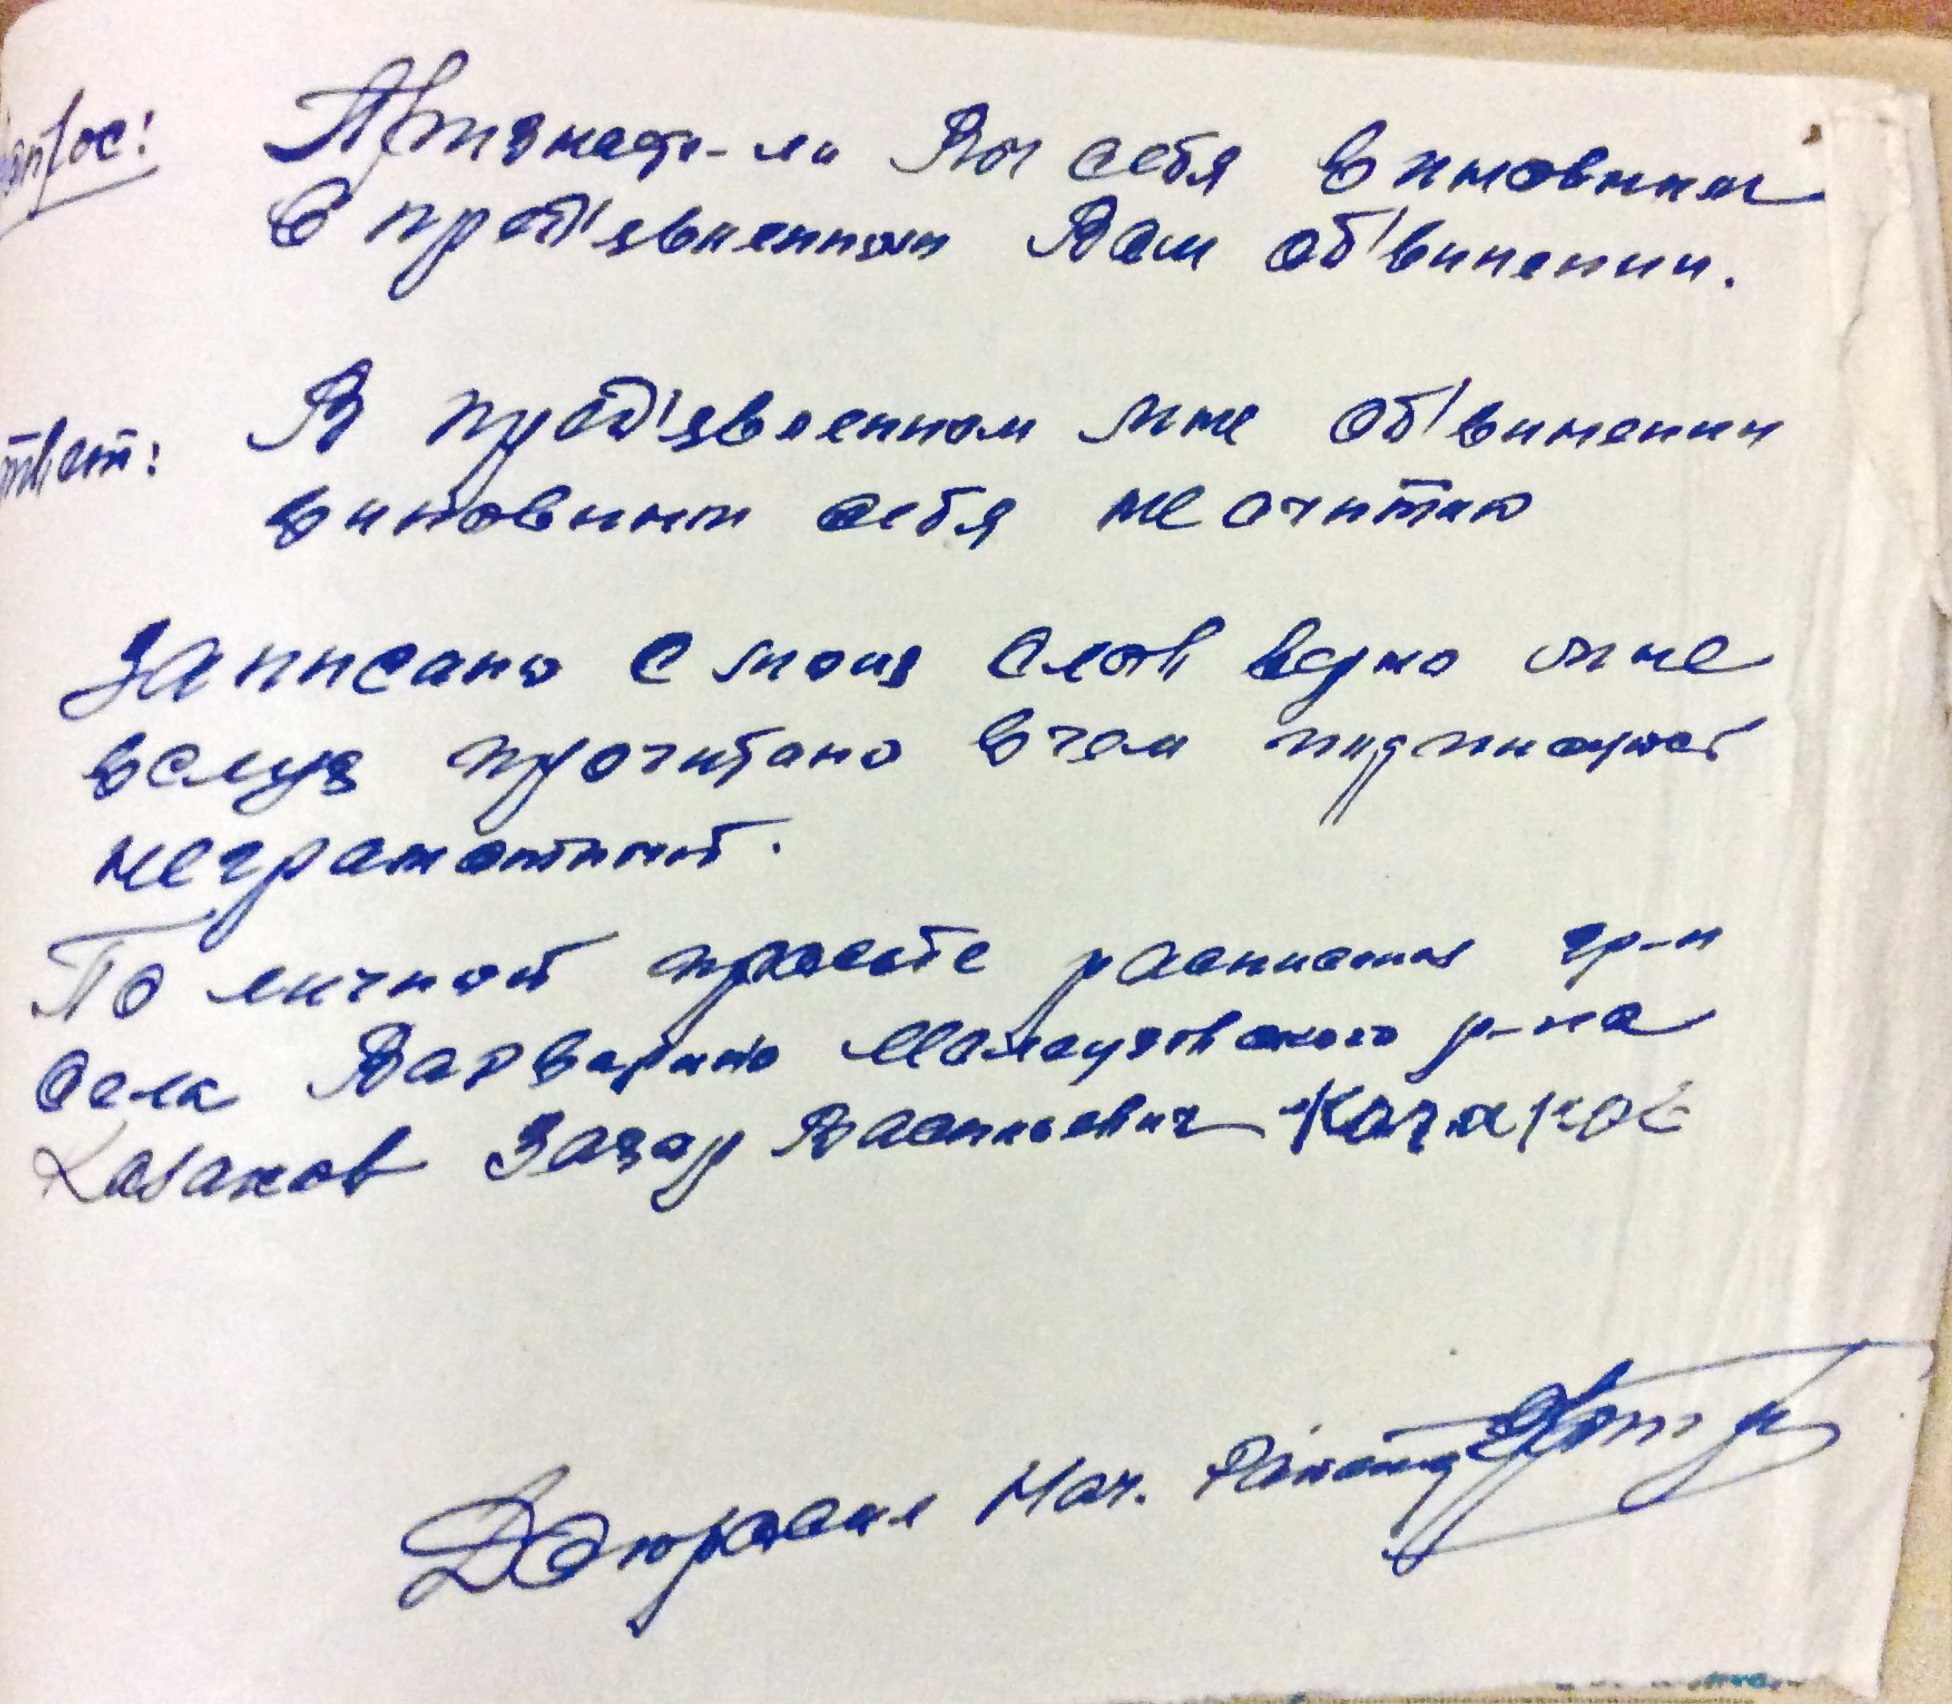 Вопрос: Признаете-ли Вы себя виновным
в пред'явленном Вам об'винении.
Ответ: В пред'явленном мне об'винении
виновным себя не считаю
Записано с моих слов верно мне
вслух прочитано в чем подписуюсь
неграмотный.
По личной прозьбе расписался гр-н
села Варварино р-на
Казаков Захар Васильевич Казаков
Допросил Нач.